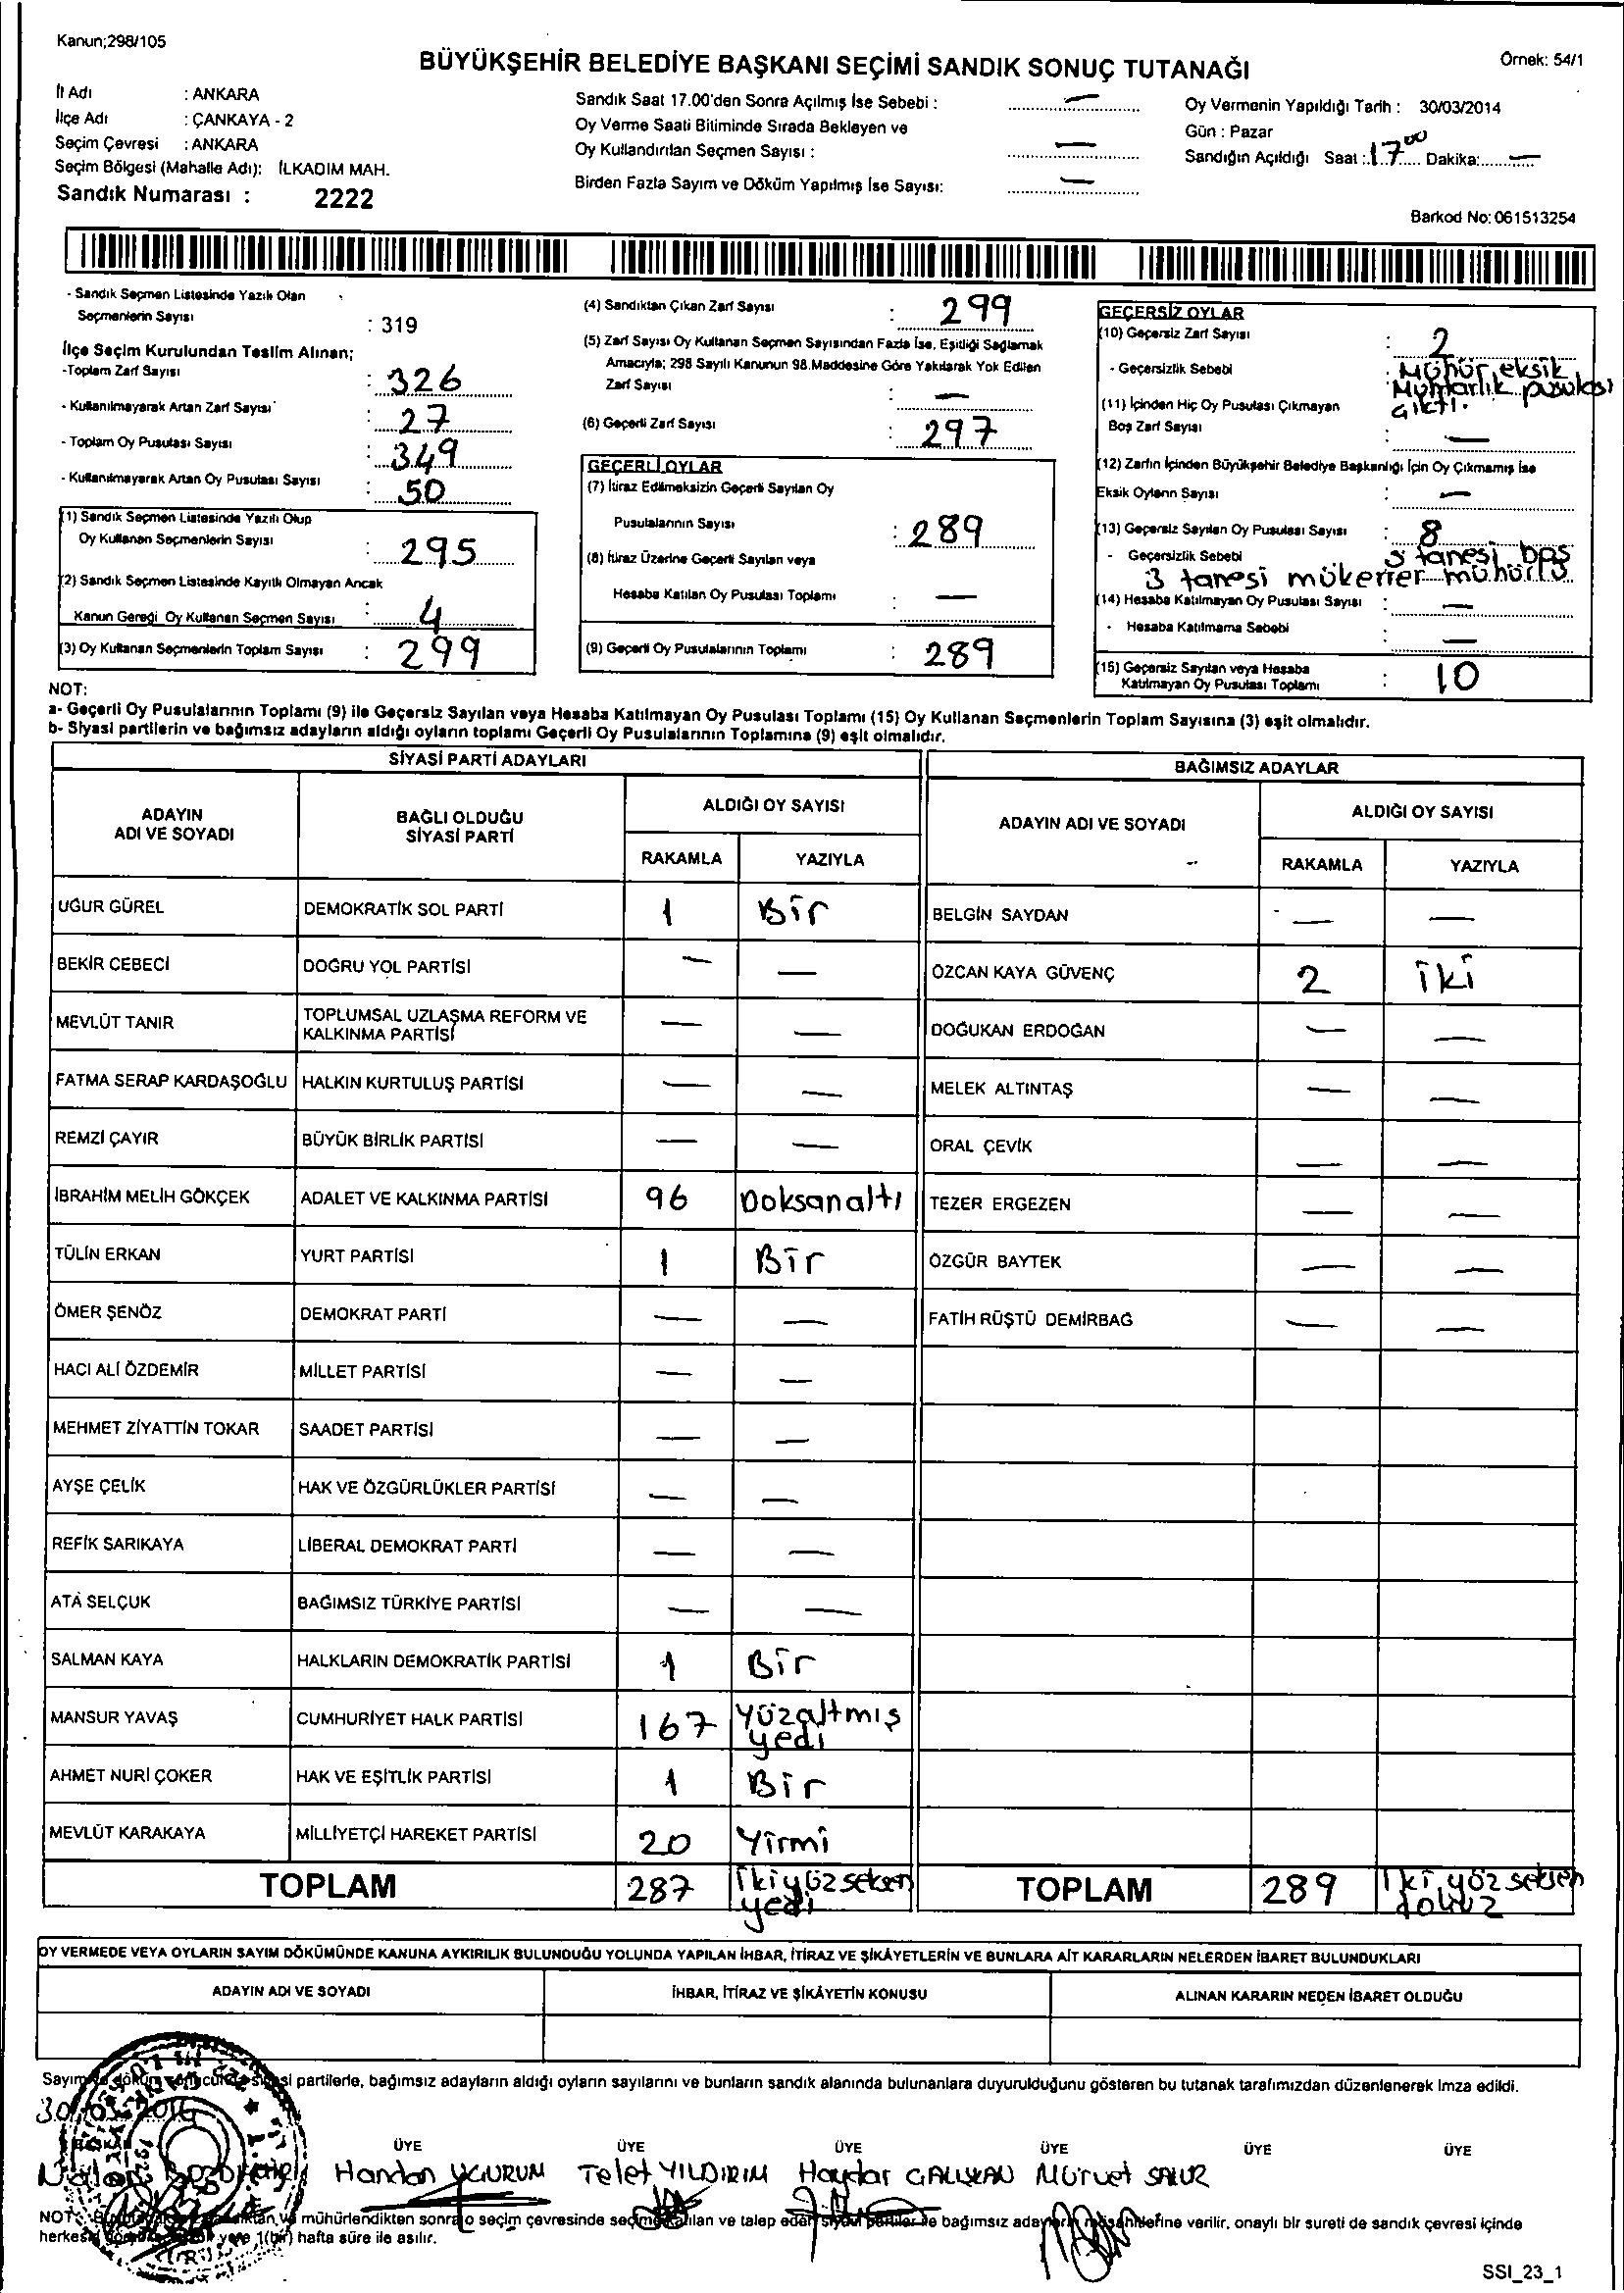 Kanun;298/105
BÜYÜKŞEHİR BELEDİYE BAŞKANI SEÇİMİ SANDIK SONUÇ TUTANAĞI
Örnek: 54/1
İl Adı : ANKARA
İlçe Adı : ÇANKAYA - 2
Seçim Çevresi : ANKARA
Seçim Bölgesi (Mahalle Adı): İLKADIM MAH.
Sandık Numarası : 2222
Sandık Saat 17.00'den Sonra Açılmış İse Sebebi : —
Oy Verme Saati Bitiminde Sırada Bekleyen ve
Oy Kullandırılan Seçmen Sayısı : —
Birden Fazla Sayım ve Döküm Yapılmış İse Sayısı: —
Oy Vermenin Yapıldığı Tarih : 30/03/2014
Gün : Pazar
Sandığın Açıldığı Saat : 17 00 Dakika: —
Barkod No: 061513254
- Sandık Seçmen Listesinde Yazılı Olan
Seçmenlerin Sayısı : 319
İlçe Seçim Kurulundan Teslim Alınan;
-Toplam Zarf Sayısı : 326
- Kullanılmayarak Artan Zarf Sayısı : 27
- Toplam Oy Pusulası Sayısı : 349
- Kullanılmayarak Artan Oy Pusulası Sayısı : 50
(1) Sandık Seçmen Listesinde Yazılı Olup
Oy Kullanan Seçmenlerin Sayısı : 295
(2) Sandık Seçmen Listesinde Kayıtlı Olmayan Ancak
Kanun Gereği Oy Kullanan Seçmen Sayısı : 4
(3) Oy Kullanan Seçmenlerin Toplam Sayısı : 299
(4) Sandıktan Çıkan Zarf Sayısı : 299
(5) Zarf Sayısı Oy Kullanan Seçmen Sayısından Fazla İse, Eşitliği Sağlamak
Amacıyla; 298 Sayılı Kanunun 98.Maddesine Göre Yakılarak Yok Edilen
Zarf Sayısı : —
(6) Geçerli Zarf Sayısı : 297
GEÇERLİ OYLAR
(7) İtiraz Edilmeksizin Geçerli Sayılan Oy
Pusulalarının Sayısı : 289
(8) İtiraz Üzerine Geçerli Sayılan veya
Hesaba Katılan Oy Pusulası Toplamı : —
(9) Geçerli Oy Pusulalarının Toplamı : 289
GEÇERSİZ OYLAR
(10) Geçersiz Zarf Sayısı : 2
- Geçersizlik Sebebi : Mühür eksik
Muhtarlık pusulası
çıktı.
(11) İçinden Hiç Oy Pusulası Çıkmayan
Boş Zarf Sayısı : —
(12) Zarfın İçinden Büyükşehir Belediye Başkanlığı İçin Oy Çıkmamış İse
Eksik Oyların Sayısı : —
(13) Geçersiz Sayılan Oy Pusulası Sayısı : 8
- Geçersizlik Sebebi 5 tanesi boş
3 tanesi mükerrer mühürlü
(14) Hesaba Katılmayan Oy Pusulası Sayısı : —
- Hesaba Katılmama Sebebi : —
(15) Geçersiz Sayılan veya Hesaba
Katılmayan Oy Pusulası Toplamı : 10
NOT:
a- Geçerli Oy Pusulalarının Toplamı (9) ile Geçersiz Sayılan veya Hesaba Katılmayan Oy Pusulası Toplamı (15) Oy Kullanan Seçmenlerin Toplam Sayısına (3) eşit olmalıdır.
b- Siyasi partilerin ve bağımsız adayların aldığı oyların toplamı Geçerli Oy Pusulalarının Toplamına (9) eşit olmalıdır.
SİYASİ PARTİ ADAYLARI
BAĞIMSIZ ADAYLAR
ADAYIN ADI VE SOYADI
BAĞLI OLDUĞU SİYASİ PARTİ
ALDIĞI OY SAYISI
RAKAMLA YAZIYLA
ADAYIN ADI VE SOYADI
ALDIĞI OY SAYISI
RAKAMLA YAZIYLA
UĞUR GÜREL DEMOKRATİK SOL PARTİ 1 Bir BELGİN SAYDAN — —
BEKİR CEBECİ DOĞRU YOL PARTİSİ — — ÖZCAN KAYA GÜVENÇ 2 iki
MEVLÜT TANIR TOPLUMSAL UZLAŞMA REFORM VE KALKINMA PARTİSİ — — DOĞUKAN ERDOĞAN — —
FATMA SERAP KARDAŞOĞLU HALKIN KURTULUŞ PARTİSİ — — MELEK ALTINTAŞ — —
REMZİ ÇAYIR BÜYÜK BİRLİK PARTİSİ — — ORAL ÇEVİK — —
İBRAHİM MELİH GÖKÇEK ADALET VE KALKINMA PARTİSİ 96 Doksanaltı TEZER ERGEZEN — —
TÜLİN ERKAN YURT PARTİSİ 1 Bir ÖZGÜR BAYTEK — —
ÖMER ŞENÖZ DEMOKRAT PARTİ — — FATİH RÜŞTÜ DEMİRBAĞ — —
HACI ALİ ÖZDEMİR MİLLET PARTİSİ — —
MEHMET ZİYATTİN TOKAR SAADET PARTİSİ — —
AYŞE ÇELİK HAK VE ÖZGÜRLÜKLER PARTİSİ — —
REFİK SARIKAYA LİBERAL DEMOKRAT PARTİ — —
ATA SELÇUK BAĞIMSIZ TÜRKİYE PARTİSİ — —
SALMAN KAYA HALKLARIN DEMOKRATİK PARTİSİ 1 Bir
MANSUR YAVAŞ CUMHURİYET HALK PARTİSİ 167 Yüzaltmış yedi
AHMET NURİ ÇOKER HAK VE EŞİTLİK PARTİSİ 1 Bir
MEVLÜT KARAKAYA MİLLİYETÇİ HAREKET PARTİSİ 20 Yirmi
TOPLAM 287 İkiyüzseksen yedi TOPLAM 289 İkiyüzseksen dokuz
OY VERMEDE VEYA OYLARIN SAYIM DÖKÜMÜNDE KANUNA AYKIRILIK BULUNDUĞU YOLUNDA YAPILAN İHBAR, İTİRAZ VE ŞİKÂYETLERİN VE BUNLARA AİT KARARLARIN NELERDEN İBARET BULUNDUKLARI
ADAYIN ADI VE SOYADI İHBAR, İTİRAZ VE ŞİKÂYETİN KONUSU ALINAN KARARIN NEDEN İBARET OLDUĞU
Sayım partilerle, bağımsız adayların aldığı oyların sayılarını ve bunların sandık alanında bulunanlara duyurulduğunu gösteren bu tutanak tarafımızdan düzenlenerek imza edildi.
ÜYE ÜYE ÜYE ÜYE ÜYE ÜYE
Handan Telet YILDIRIM Haydar ÇALIŞKAN Mürvet
NOT: mühürlendikten sonra o seçim çevresinde ve talep eden bağımsız verilir, onaylı bir sureti de sandık çevresi içinde
yere 1(bir) hafta süre ile asılır.
SSI_23_1